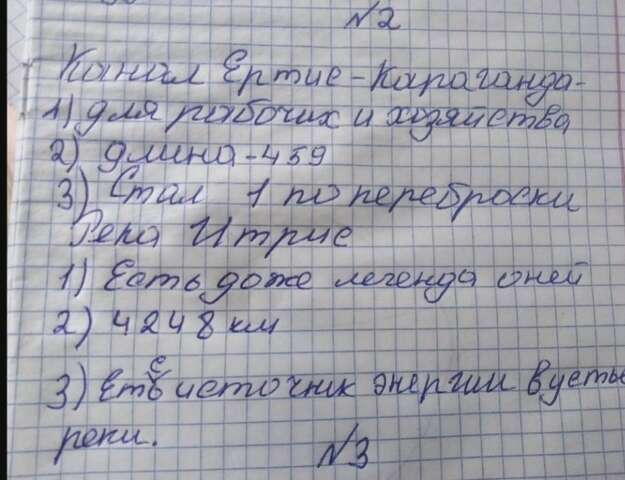 №2
Канал Ертис-Караганда-
1) для рабочих и хозяйства
2) длина-459
3) Стал 1 по переброски
Река Итрис
1) Есть даже легенда о ней
2) 4248 км
3) Етсь источник энергии в устье
реки.
№3